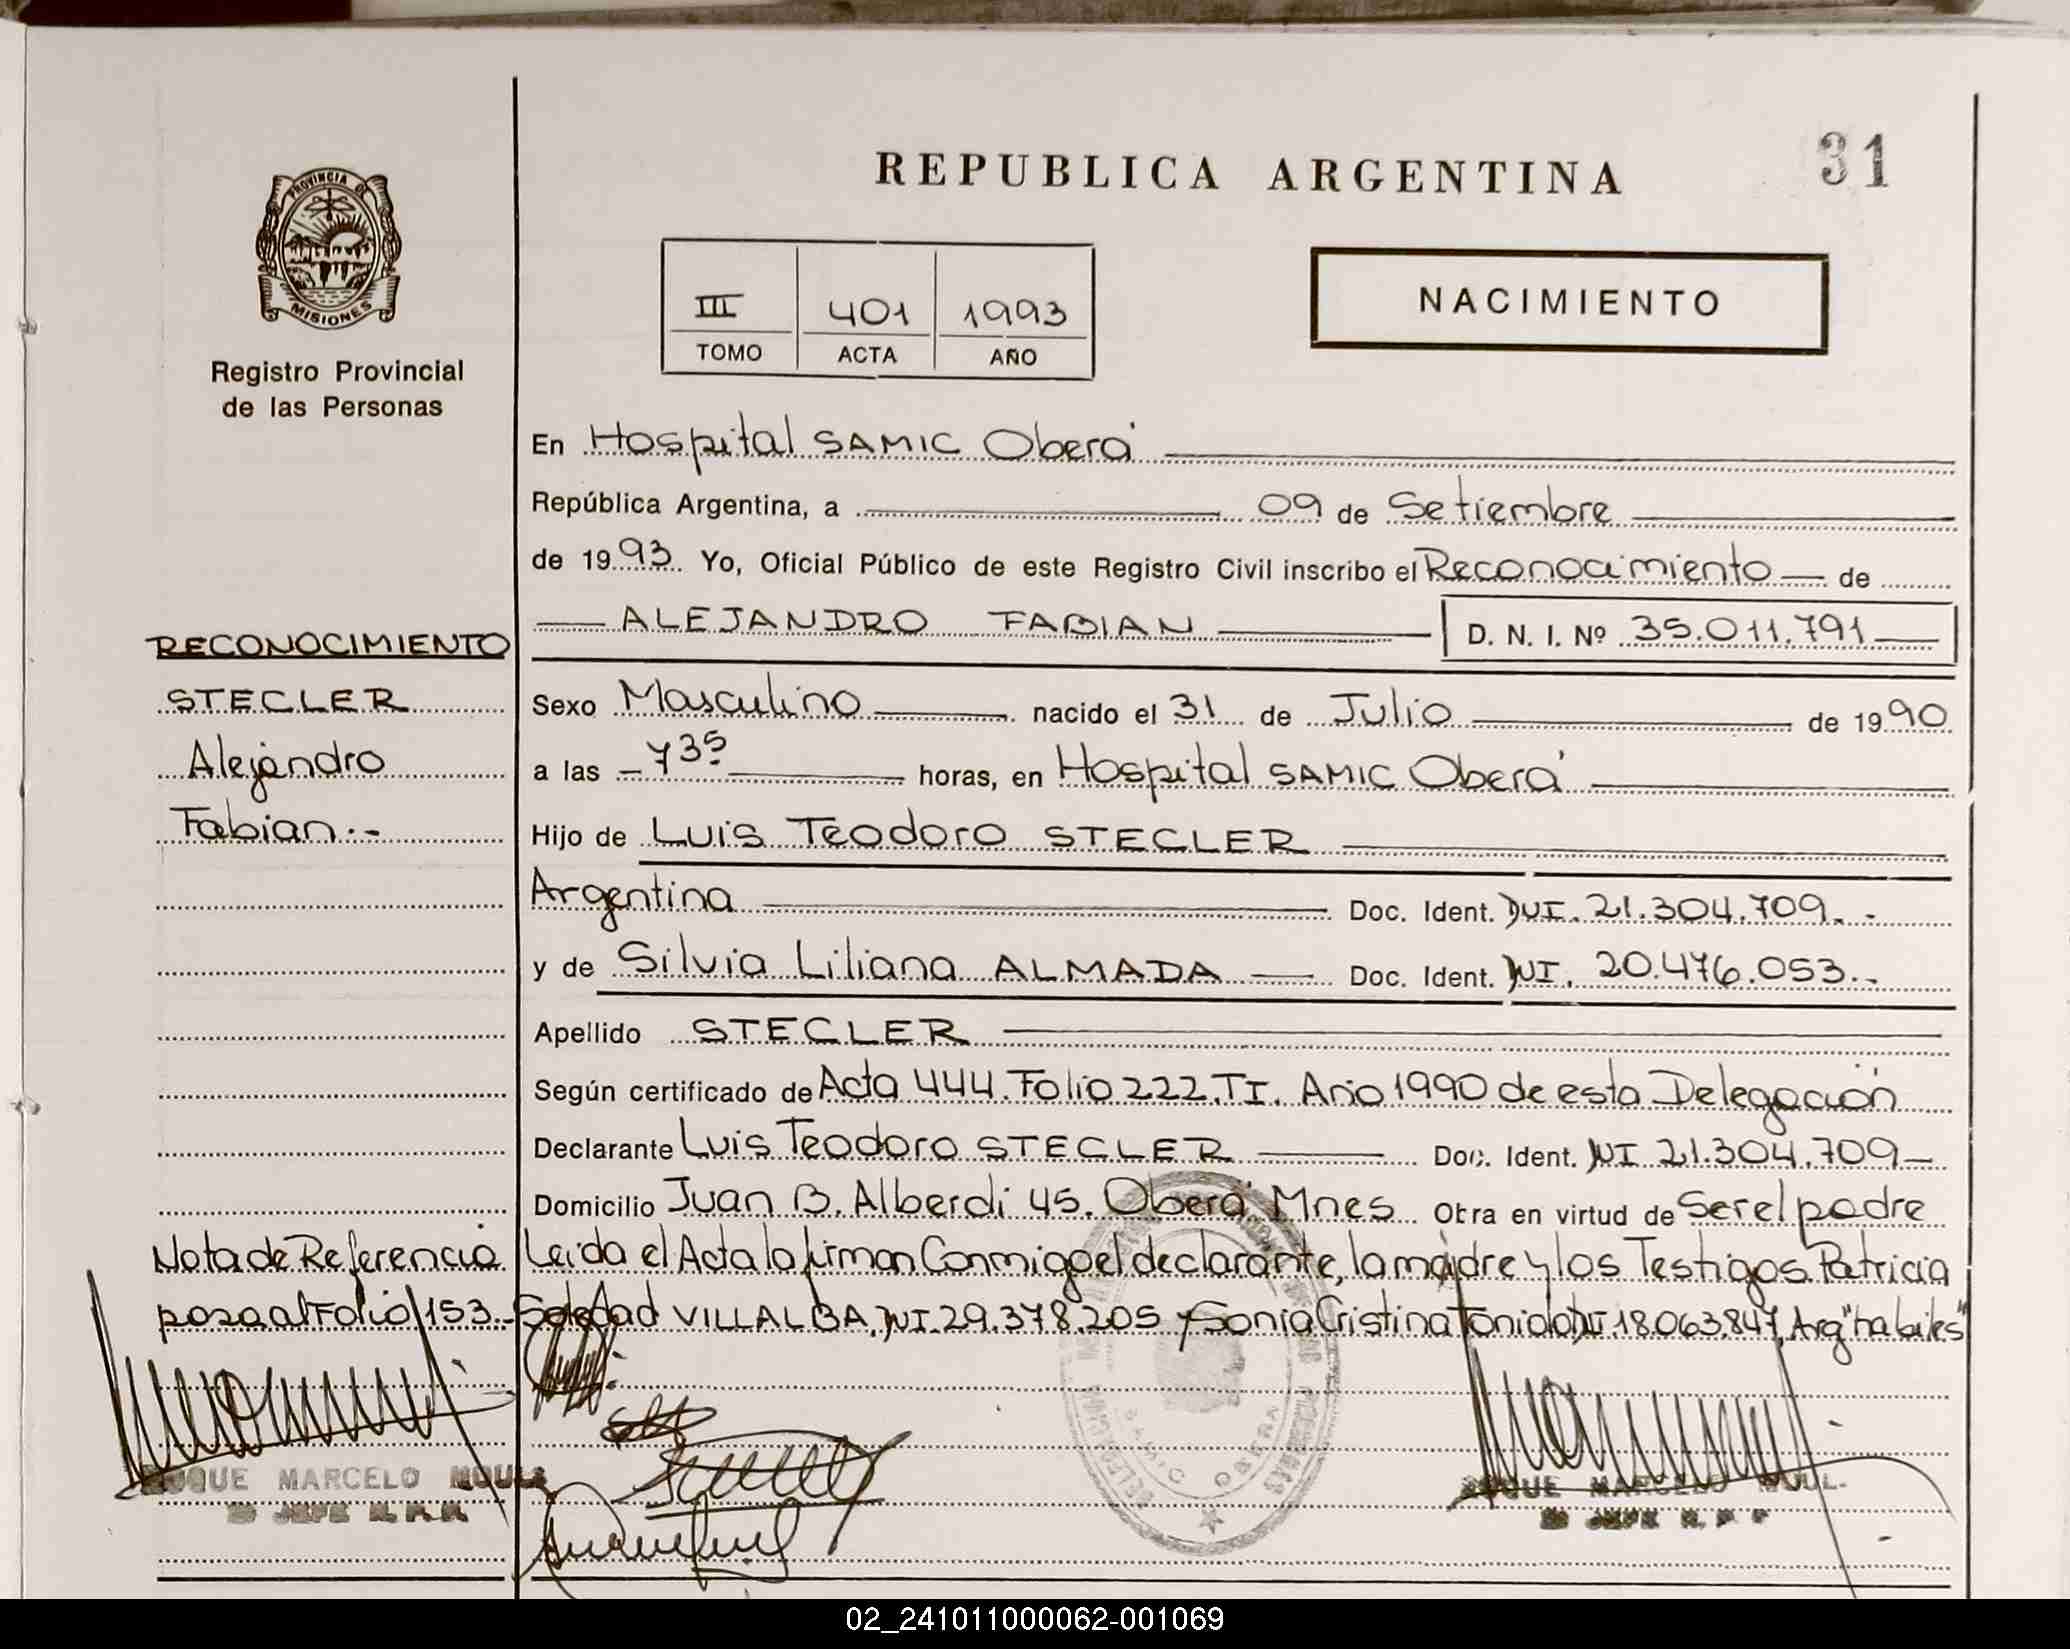 REPUBLICA ARGENTINA
31
PROVINCIA DE
MISIONES
Registro Provincial
de las Personas
III 401 1993
TOMO ACTA AÑO
NACIMIENTO
En Hospital SAMIC Oberá
República Argentina, a 09 de Setiembre
de 1993 Yo, Oficial Público de este Registro Civil inscribo el Reconocimiento de
ALEJANDRO FABIAN D. N. I. Nº 35.011.791
RECONOCIMIENTO
STECLER
Alejandro
Fabian.-
Sexo Masculino nacido el 31 de Julio de 1990
a las 735 horas, en Hospital SAMIC Oberá
Hijo de Luis Teodoro STECLER
Argentina Doc. Ident. DNI. 21.304.709.-
y de Silvia Liliana ALMADA Doc. Ident. DNI. 20.476.053.-
Apellido STECLER
Según certificado de Acta 444. Folio 222. TI. Año 1990 de esta Delegación
Declarante Luis Teodoro STECLER Doc. Ident. DNI 21.304.709
Domicilio Juan B. Alberdi 45. Oberá Mnes Obra en virtud de Ser el padre
Leida el Acta la firman Conmigo el declarante, la madre y los Testigos Patricia
Soledad VILLALBA, DNI. 29.378.205 y Sonia Cristina Tonido DNI 18.063.847, Arg "habiles"
Nota de Referencia
pasa al Folio 153.-
DUQUE MARCELO
JEFE R. P. P.
OBERA
DUQUE MARCELO
JEFE R. P. P.
02_241011000062-001069